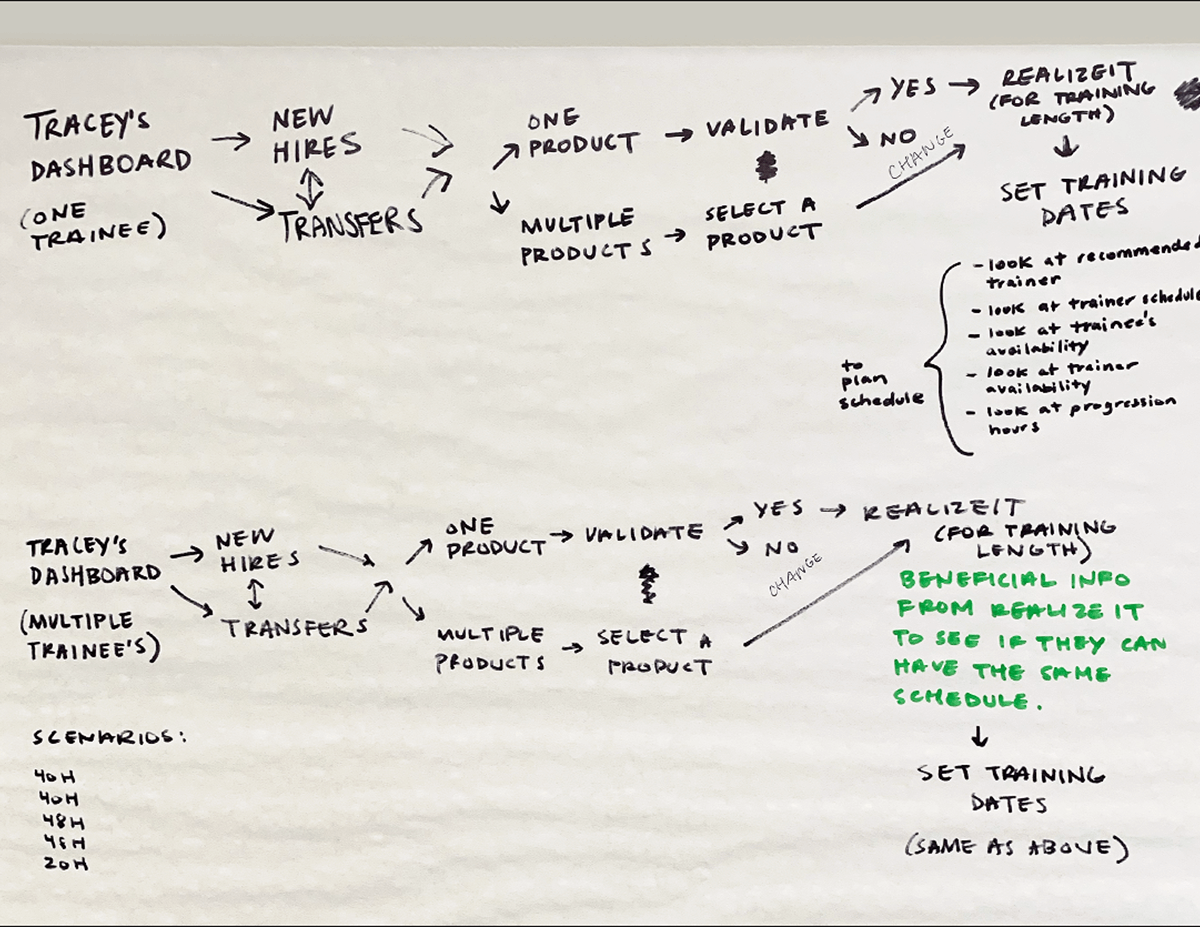 TRACEY'S
DASHBOARD
(ONE
TRAINEE)
NEW
HIRES
TRANSFERS
ONE
PRODUCT
MULTIPLE
PRODUCTS
VALIDATE
SELECT A
PRODUCT
YES
NO
CHANGE
REALIZEIT
(FOR TRAINING
LENGTH)
SET TRAINING
DATES
to
plan
schedule
- look at recommended
trainer
- look at trainer schedule
- look at trainee's
availability
- look at trainer
availability
- look at progression
hours
TRACEY'S
DASHBOARD
(MULTIPLE
TRAINEE'S)
NEW
HIRES
TRANSFERS
ONE
PRODUCT
MULTIPLE
PRODUCTS
VALIDATE
SELECT A
PRODUCT
YES
NO
CHANGE
REALIZEIT
(FOR TRAINING
LENGTH)
BENEFICIAL INFO
FROM REALIZEIT
TO SEE IF THEY CAN
HAVE THE SAME
SCHEDULE.
SET TRAINING
DATES
(SAME AS ABOVE)
SCENARIOS:
40H
40H
48H
20H